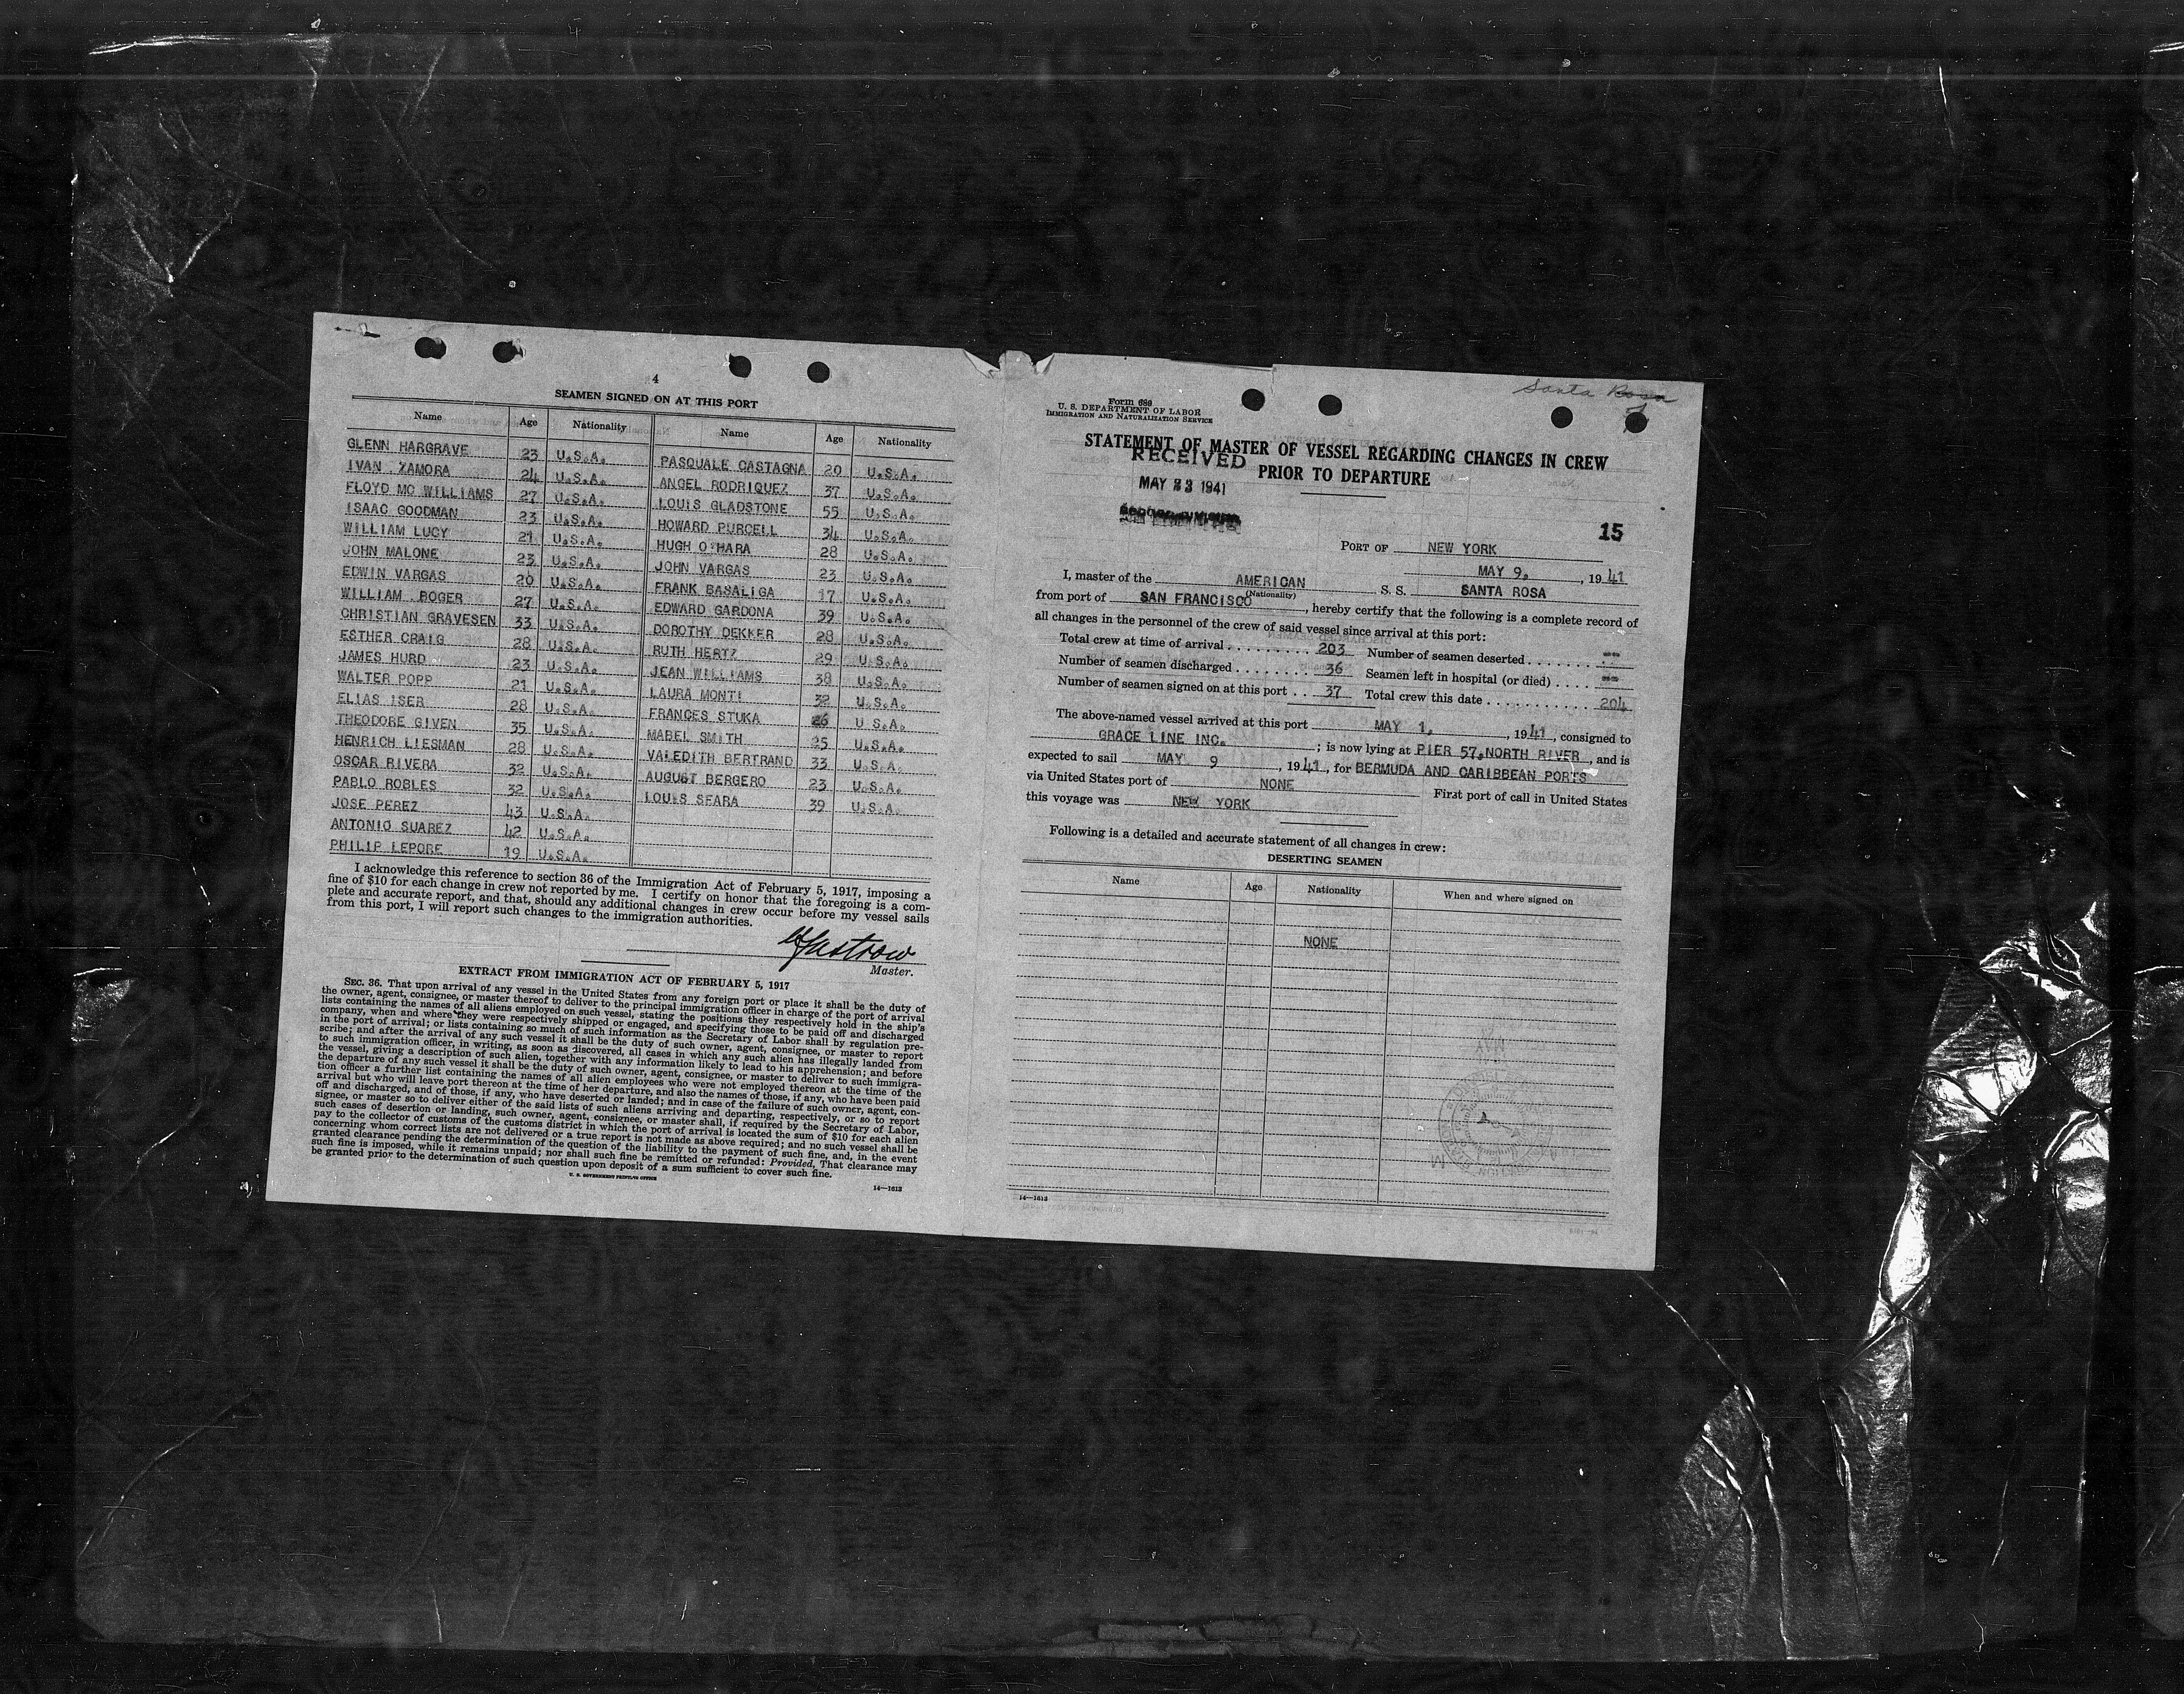 4
SEAMEN SIGNED ON AT THIS PORT
Name Age Nationality Name Age Nationality
GLENN HARGRAVE 23 U.S.A. PASQUALE CASTAGNA 20 U.S.A.
IVAN ZAMORA 24 U.S.A. ANGEL RODRIQUEZ 37 U.S.A.
FLOYD MC WILLIAMS 27 U.S.A. LOUIS GLADSTONE 55 U.S.A.
ISAAC GOODMAN 23 U.S.A. HOWARD PURCELL 34 U.S.A.
WILLIAM LUCY 21 U.S.A. HUGH O'HARA 28 U.S.A.
JOHN MALONE 23 U.S.A. JOHN VARGAS 23 U.S.A.
EDWIN VARGAS 20 U.S.A. FRANK BASALIGA 17 U.S.A.
WILLIAM BOGER 27 U.S.A. EDWARD GARDONA 39 U.S.A.
CHRISTIAN GRAVESEN 33 U.S.A. DOROTHY DEKKER 28 U.S.A.
ESTHER CRAIG 28 U.S.A. RUTH HERTZ 29 U.S.A.
JAMES HURD 23 U.S.A. JEAN WILLIAMS 38 U.S.A.
WALTER POPP 21 U.S.A. LAURA MONTI 32 U.S.A.
ELIAS ISER 28 U.S.A. FRANCES STUKA 26 U.S.A.
THEODORE GIVEN 35 U.S.A. MABEL SMITH 25 U.S.A.
HENRICH LIESMAN 28 U.S.A. VALEDITH BERTRAND 33 U.S.A.
OSCAR RIVERA 32 U.S.A. AUGUST BERGERO 23 U.S.A.
PABLO ROBLES 32 U.S.A. LOUIS SFARA 39 U.S.A.
JOSE PEREZ 43 U.S.A.
ANTONIO SUAREZ 42 U.S.A.
PHILIP LEPORE 19 U.S.A.
I acknowledge this reference to section 36 of the Immigration Act of February 5, 1917, imposing a
fine of $10 for each change in crew not reported by me. I certify on honor that the foregoing is a com-
plete and accurate report, and that, should any additional changes in crew occur before my vessel sails
from this port, I will report such changes to the immigration authorities.
Master.
EXTRACT FROM IMMIGRATION ACT OF FEBRUARY 5, 1917
SEC. 36. That upon arrival of any vessel in the United States from any foreign port or place it shall be the duty of
the owner, agent, consignee, or master thereof to deliver to the principal immigration officer in charge of the port of arrival
lists containing the names of all aliens employed on such vessel, stating the positions they respectively hold in the ship's
company, when and where they were respectively shipped or engaged, and specifying those to be paid off and discharged
in the port of arrival; or lists containing so much of such information as the Secretary of Labor shall by regulation pre-
scribe; and after the arrival of any such vessel it shall be the duty of such owner, agent, consignee, or master to report
to such immigration officer, in writing, as soon as discovered, all cases in which any such alien has illegally landed from
the vessel, giving a description of such alien, together with any information likely to lead to his apprehension; and before
the departure of any such vessel it shall be the duty of such owner, agent, consignee, or master to deliver to such immigra-
tion officer a further list containing the names of all alien employees who were not employed thereon at the time of the
arrival but who will leave port thereon at the time of her departure, and also the names of those, if any, who have been paid
off and discharged, and of those, if any, who have deserted or landed; and in case of the failure of such owner, agent, con-
signee, or master so to deliver either of the said lists of such aliens arriving and departing, respectively, or so to report
such cases of desertion or landing, such owner, agent, consignee, or master shall, if required by the Secretary of Labor,
pay to the collector of customs of the customs district in which the port of arrival is located the sum of $10 for each alien
concerning whom correct lists are not delivered or a true report is not made as above required; and no such vessel shall be
granted clearance pending the determination of the question of the liability to the payment of such fine, and, in the event
such fine is imposed, while it remains unpaid; nor shall such fine be remitted or refunded: Provided, That clearance may
be granted prior to the determination of such question upon deposit of a sum sufficient to cover such fine.
U. S. GOVERNMENT PRINTING OFFICE
14—1613
Santa Rosa
Form 689
U. S. DEPARTMENT OF LABOR
IMMIGRATION AND NATURALIZATION SERVICE
STATEMENT OF MASTER OF VESSEL REGARDING CHANGES IN CREW
PRIOR TO DEPARTURE
RECEIVED
MAY 23 1941
15
PORT OF NEW YORK
MAY 9, , 1941
I, master of the AMERICAN S. S. SANTA ROSA
(Nationality)
from port of SAN FRANCISCO , hereby certify that the following is a complete record of
all changes in the personnel of the crew of said vessel since arrival at this port:
Total crew at time of arrival 203 Number of seamen deserted --
Number of seamen discharged 36 Seamen left in hospital (or died) --
Number of seamen signed on at this port 37 Total crew this date 204
The above-named vessel arrived at this port MAY 1, , 1941, consigned to
GRACE LINE INC. ; is now lying at PIER 57,NORTH RIVER , and is
expected to sail MAY 9 , 1941, for BERMUDA AND CARIBBEAN PORTS
via United States port of NONE First port of call in United States
this voyage was NEW YORK
Following is a detailed and accurate statement of all changes in crew:
DESERTING SEAMEN
Name Age Nationality When and where signed on
NONE
14—1613